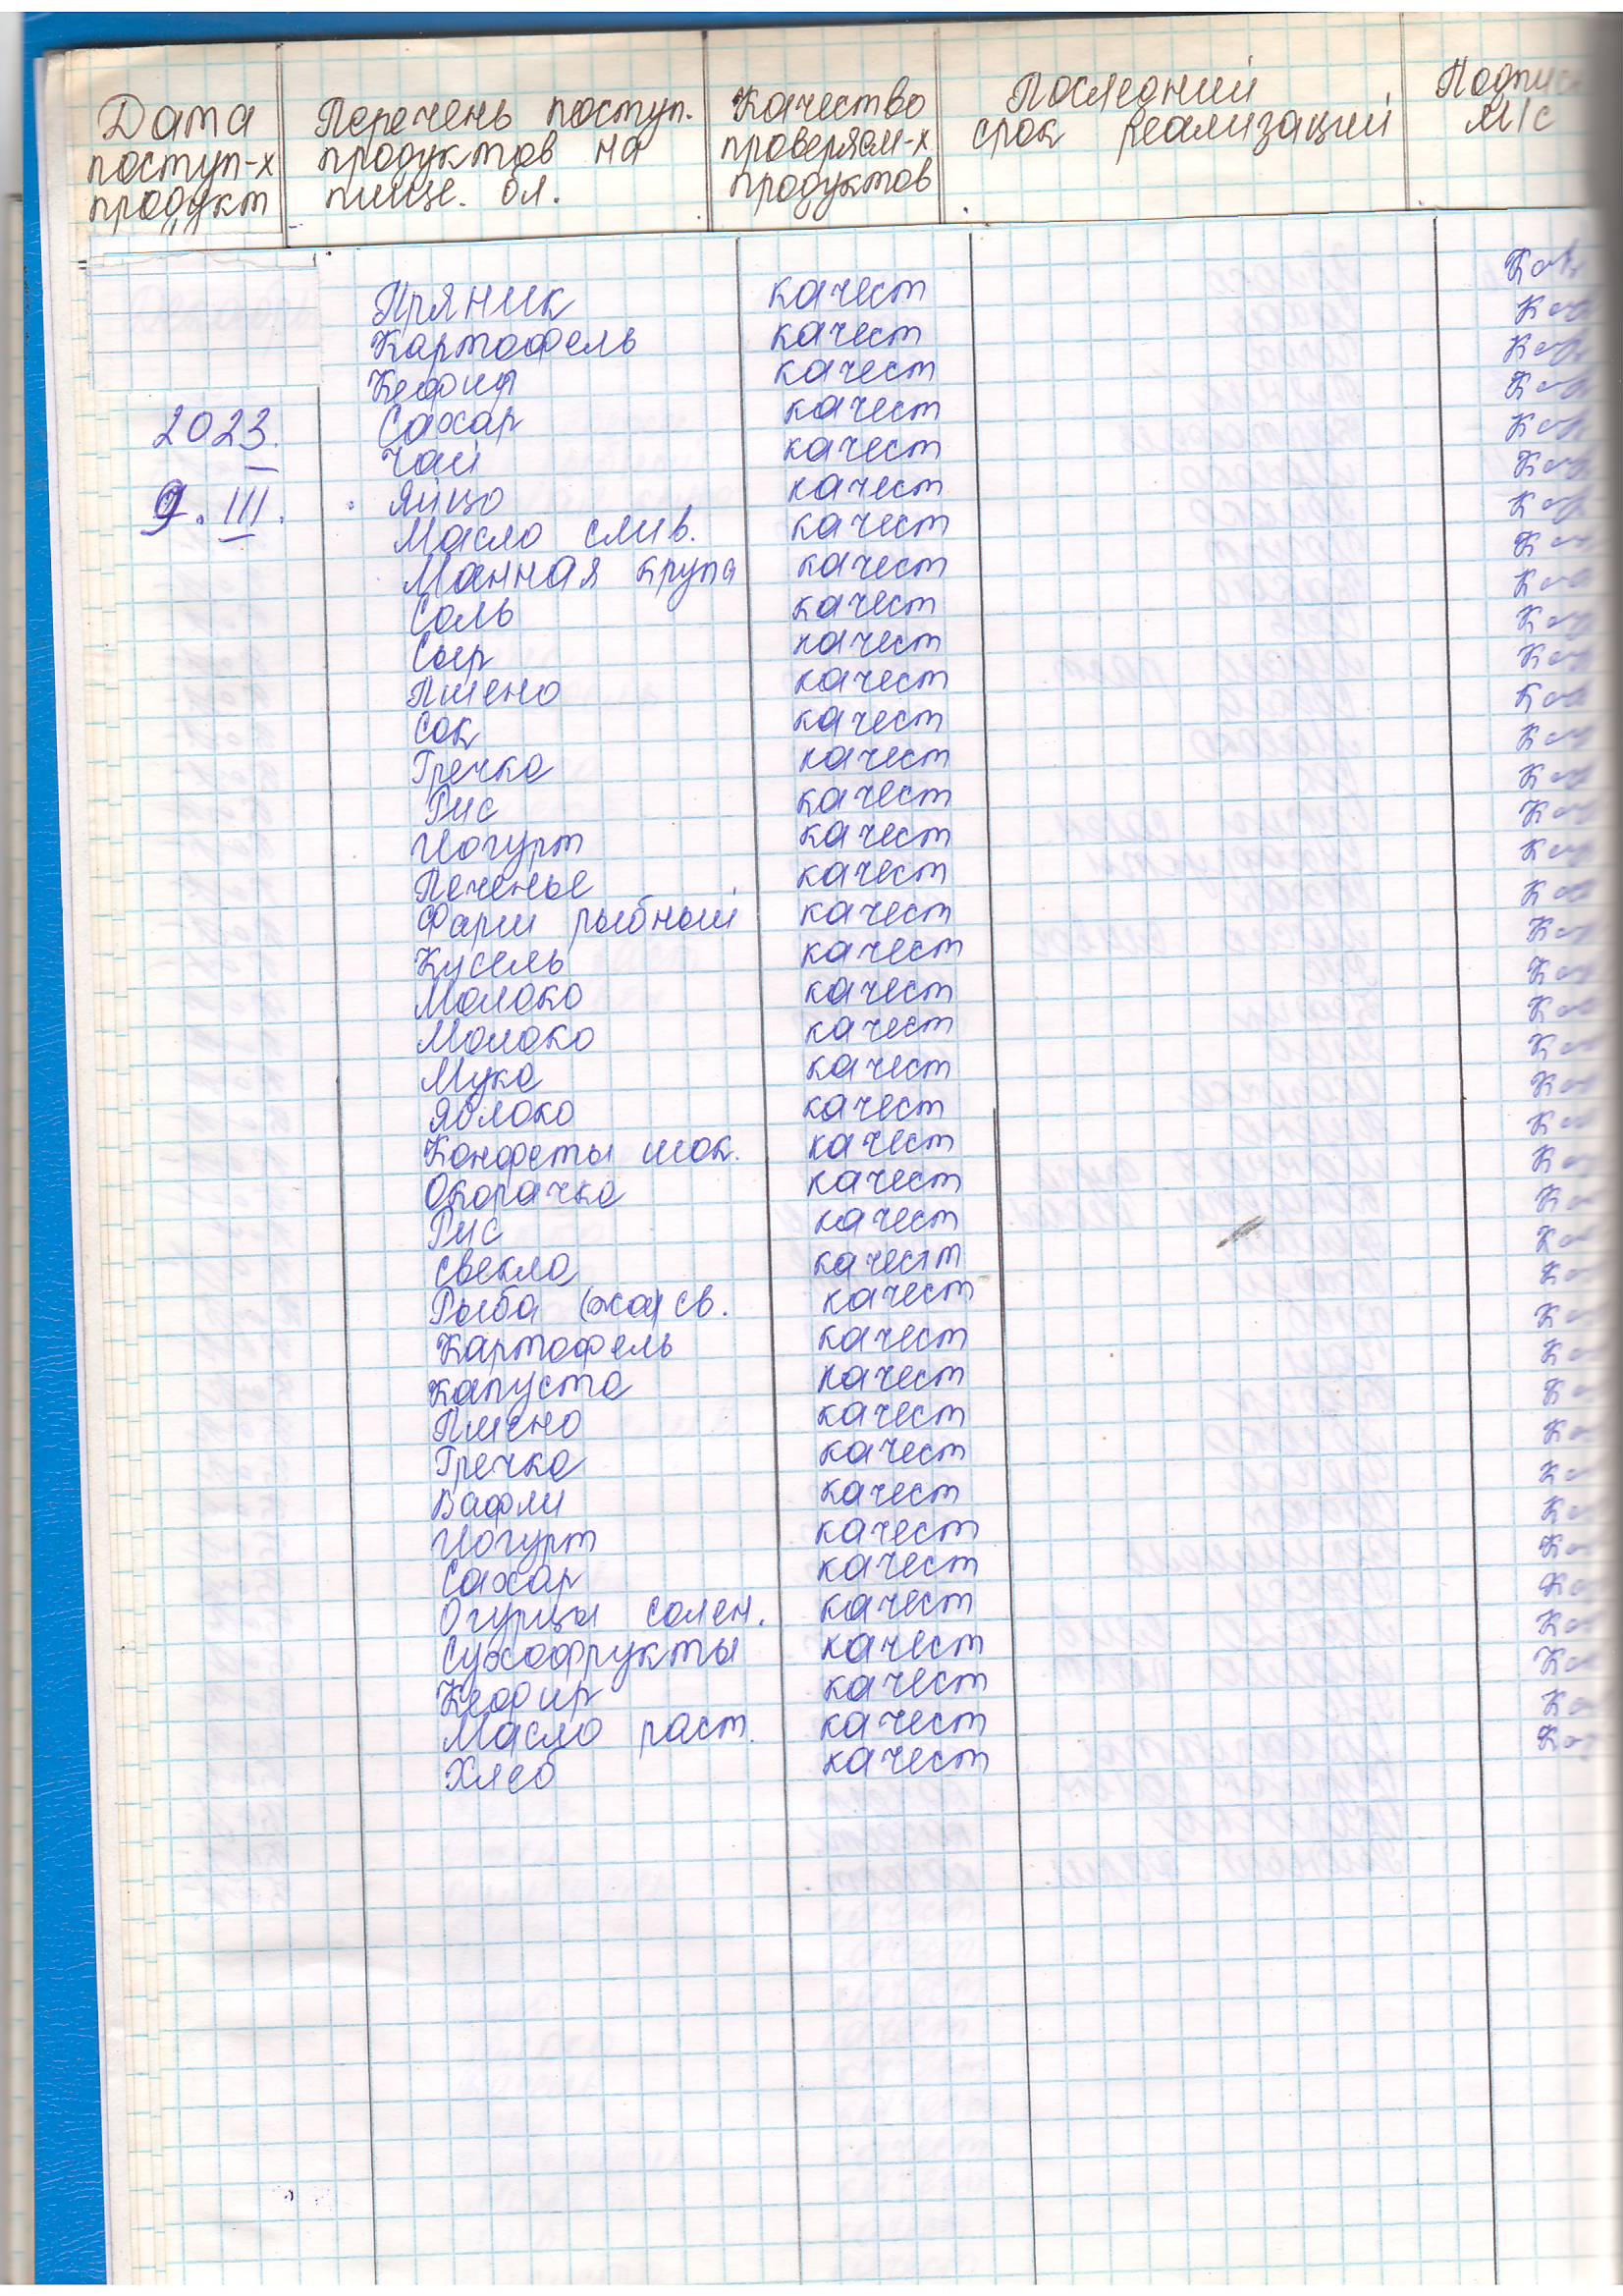 Дата поступ-х продукт
Перечень поступ. продуктов на пище. бл.
Качество проверяем-х продуктов
Последний срок реализаций
Подпис М/с
Пряник качест
Картофель качест
Кефир качест
2023. Сахар качест
Чай качест
9. III. Яйцо качест
Масло слив. качест
Манная крупа качест
Соль качест
Сыр качест
Пшено качест
Сок качест
Гречка качест
Рис качест
Йогурт качест
Печенье качест
Фарш рыбный качест
Кисель качест
Молоко качест
Молоко качест
Мука качест
Яблоко качест
Конфеты шок. качест
Окорачка качест
Рис качест
Свекла качест
Рыба св. качест
Картофель качест
Капуста качест
Пшено качест
Гречка качест
Вафли качест
Йогурт качест
Сахар качест
Огурцы солен. качест
Сухофрукты качест
Кефир качест
Масло раст. качест
Хлеб качест